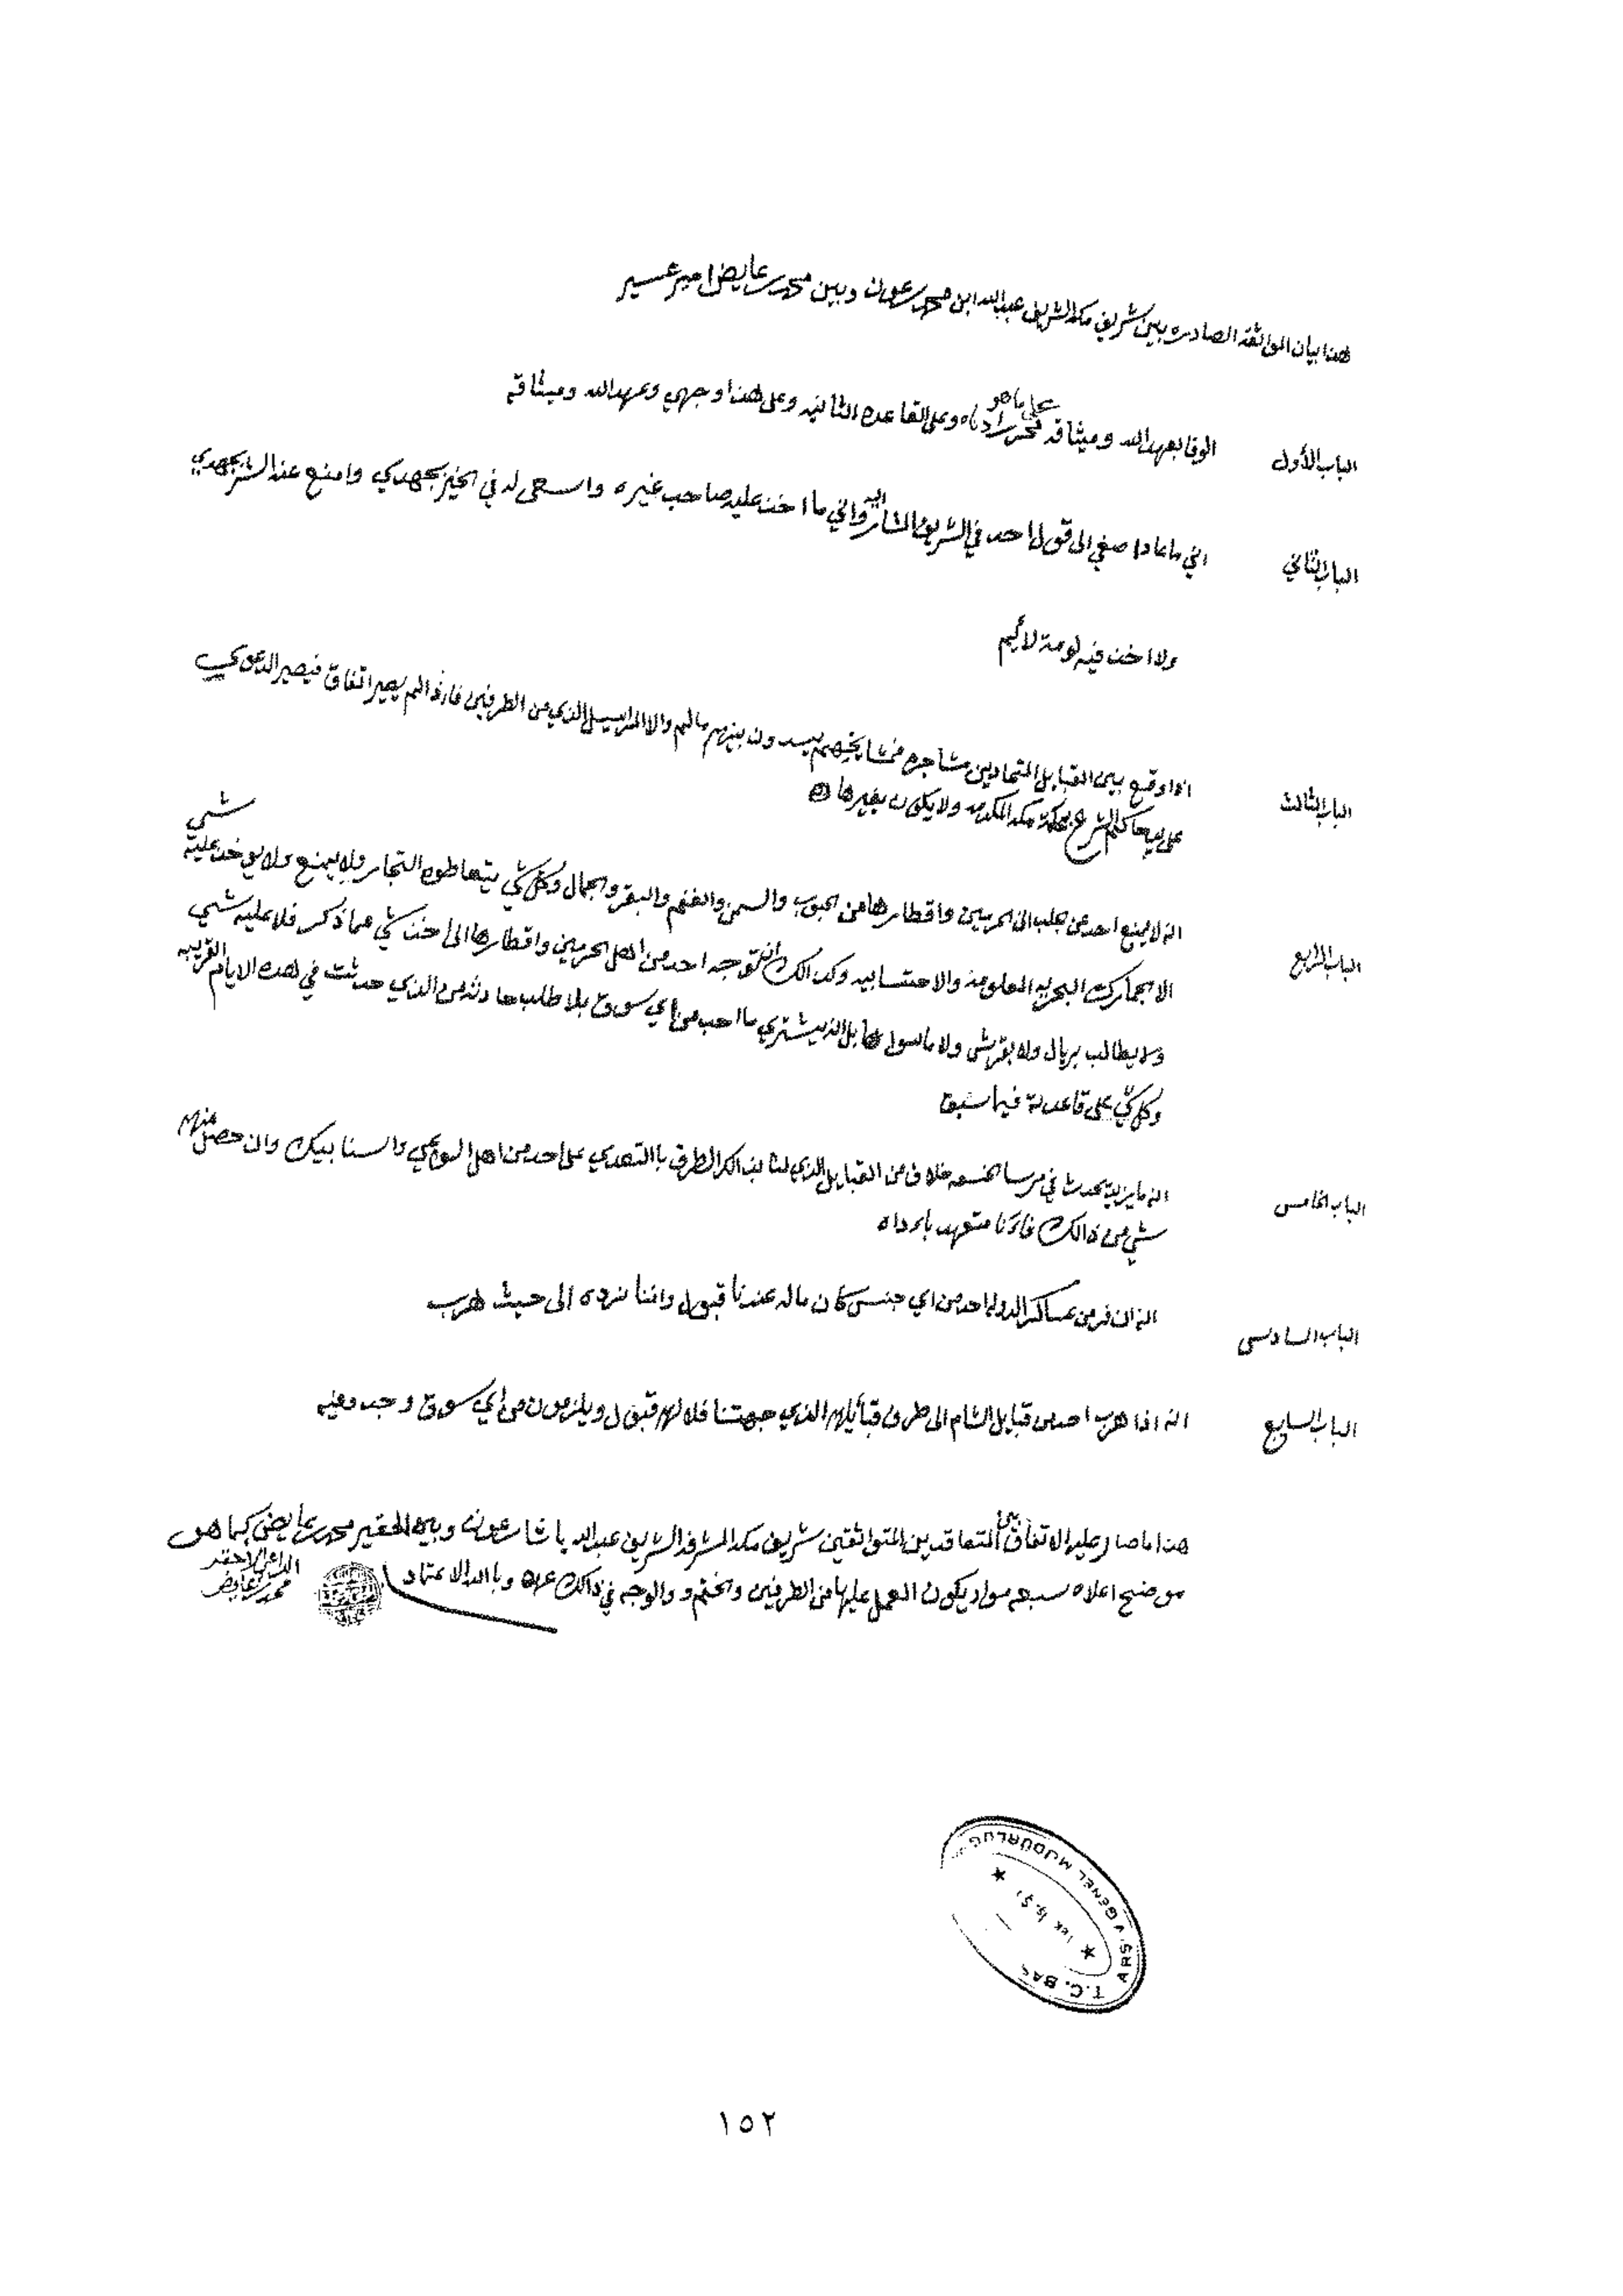 هذا بيان المواثقة الصادره بين شريف مكه الشريف عبدالله ابن محمد بن عون وبين محمد بن عايض امير عسير
الباب الأول الوفا بعهد الله وميثاقه على ما هو محرر ادناه وعلى القاعده الثانيه وعلى هذا وجهي وعهد الله وميثاقه
الباب الثاني اني ما عاد اصغي الى قول احد في الشريف المشار اليه واني ما اخذ عليه صاحب غيره واسعى له في الخير بجهدي وامنع عنه الشر بجهدي
ولا اخذ فيه لومة لائيم
الباب الثالث اذا وقع بين القبايل المتحادين مشاجره فمشايخهم يسدون بينهم مالهم والا المراسيل الذي من الطرفين فاذا لم يصير اتفاق فيصير الدعوى
على يد حاكم الشرع بمحكمة مكه المكرمه ولا يكون بغيرها
الباب الرابع انه لا يمنع احد من جلب الى الحرمين واقطارها من الحبوب والسمن والغنم والبقر والجمال وكل شي يتعاطوه التجار ولا يمنع ولا يوخذ عليه شي
الا الجمارك البحريه المعلومه والاحتسابيه وكذالك ان توجه احد من اهل الحرمين واقطارها الى اخذ شي مما ذكر فلا عليه شي
ولا يطالب بريال ولا بقرش ولا بل انه يشتري ما احب من اي سوق بلا طلب حادثه من الذي حدثت في هذه الايام القريبه
وكل شي على قاعدته فيما سبق
الباب الخامس انه ما يزيد يحدث في مرسا خلاف من القبايل الذي لنا بذالك الطرف باالتعدي على احد من اهل والسنابيك وان حصل منهم
شي من ذالك فانا متعهد بارداه
الباب السادس انه ان فر من عساكر الدوله احد من اي جنس كان ماله عندنا قبول واننا نرده الى حيث هرب
الباب السابع انه اذا هرب احد من قبايل الشام الى طرف قبأيلهم الذي جهتنا فلا لهم قبول ويلزمون من اي سوق وجد وفيه
هذا ما صار عليه الاتفاق بين المتعاقدين المتواثقين شريف مكه المشرفه الشريف عبدالله باشا بن عون وبين الحقير محمد بن عايض كما هو
موضح اعلاه سبعه مواد يكون العمل عليها من الطرفين والختم والوجه في ذالك وباالله الاعتماد
الداعي الاحقر
محمد بن عايض
T.C. BAŞ
ARŞİV GENEL MÜDÜRLÜĞÜ
١٥٢